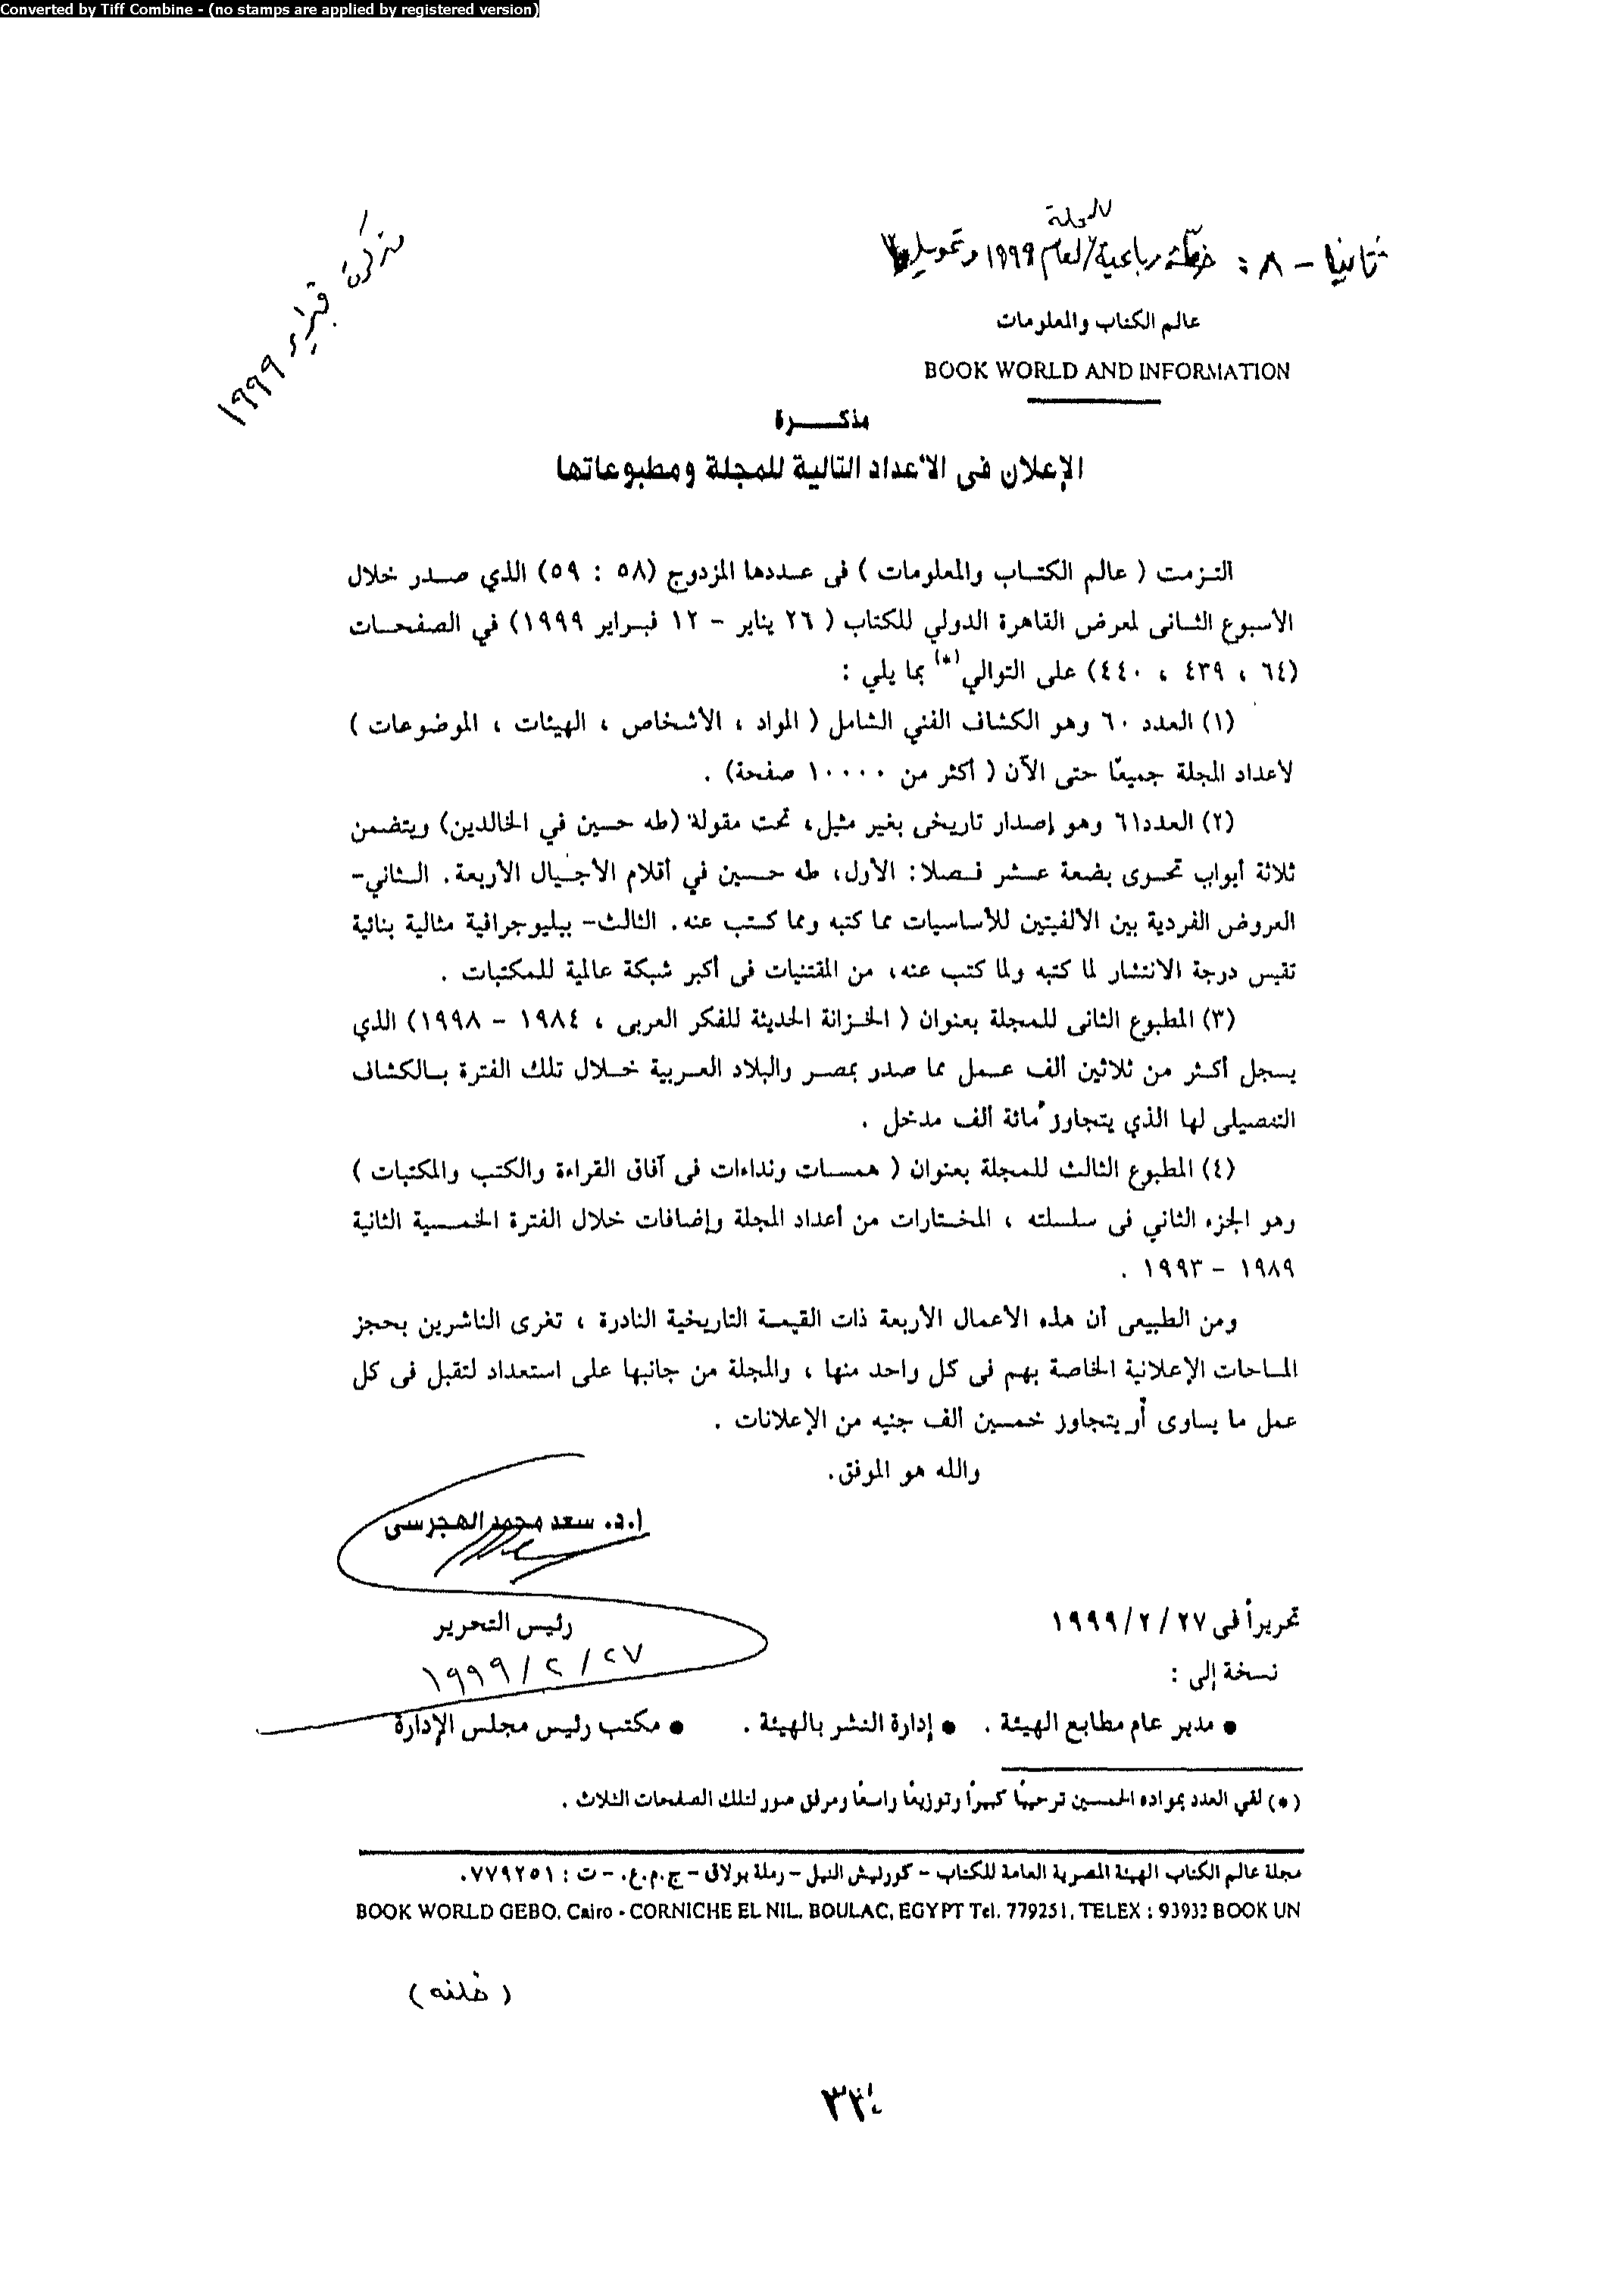 Converted by Tiff Combine - (no stamps are applied by registered version)
للمجلة
ثانيا - ٨ : خطة رباعية / لعام ١٩٩٩ وتمويلها
مذكرة فبراير ١٩٩٩
عالم الكتاب والمعلومات
BOOK WORLD AND INFORMATION
مذكـــــرة
الإعلان فى الأعداد التالية للمجلة ومطبوعاتها
التـزمت ( عالم الكتـاب والمعلومات ) فى عـددها المزدوج (٥٨ : ٥٩) الذي صـدر خلال
الأسبوع الثـانى لمعرض القاهرة الدولي للكتاب ( ٢٦ يناير - ١٢ فبـراير ١٩٩٩) في الصفحـات
(٦٤ ، ٤٣٩ ، ٤٤٠) على التوالي(*) بما يلي :
(١) العدد ٦٠ وهو الكشاف الفني الشامل ( المواد ، الأشخاص ، الهيئات ، الموضوعات )
لأعداد المجلة جميعًا حتى الآن ( أكثر من ١٠٠٠٠ صفحة) .
(٢) العدد٦١ وهو إصدار تاريخى بغير مثيل، تحت مقولة (طه حسين في الخالدين) ويتضمن
ثلاثة أبواب تحـوى بضعة عـشر فـصلا: الأول، طه حـسين في أقلام الأجـيال الأربعة. الـثاني-
العروض الفردية بين الألفيتين للأساسيات مما كتبه ومما كـتب عنه. الثالث- ببليوجرافية مثالية بنائية
تقيس درجة الانتشار لما كتبه ولما كتب عنه، من المقتنيات فى أكبر شبكة عالمية للمكتبات .
(٣) المطبوع الثانى للمجلة بعنوان ( الخـزانة الحديثة للفكر العربى ، ١٩٨٤ - ١٩٩٨) الذي
يسجل أكـثر من ثلاثين ألف عـمل مما صدر بمصـر والبلاد العـربية خـلال تلك الفترة بـالكشاف
التفصيلى لها الذي يتجاوز مائة ألف مدخل .
(٤) المطبوع الثالث للمجلة بعنوان ( همسـات ونداءات فى آفاق القراءة والكتب والمكتبات )
وهو الجزء الثاني فى سلسلته ، المختارات من أعداد المجلة وإضافات خلال الفترة الخمسـية الثانية
١٩٨٩ - ١٩٩٣ .
ومن الطبيعى أن هذه الأعمال الأربعة ذات القيمـة التاريخية النادرة ، تغرى الناشرين بحجز
المـاحات الإعلانية الخاصة بهم فى كل واحد منها ، والمجلة من جانبها على استعداد لتقبل فى كل
عمل ما يساوى أو يتجاوز خمسين ألف جنيه من الإعلانات .
والله هو الموفق.
ا.د. سعد محمد الهجرسى
رئيس التحرير
٢٧ / ٢ / ١٩٩٩
تحريراً فى ٢٧ / ٢ / ١٩٩٩
نسخة إلى :
● مدير عام مطابع الهيئة . ● إدارة النشر بالهيئة . ● مكتب رئيس مجلس الإدارة
(*) لقي العدد بمواده الخمسين ترحيبًا كبيراً وتوزيعًا واسعًا ومرفق صور لتلك الصفحات الثلاث .
مجلة عالم الكتاب الهيئة المصرية العامة للكتاب - كورنيش النيل - رملة بولاق - ج.م.ع. - ت : ٧٧٩٢٥١.
BOOK WORLD GEBO. Cairo - CORNICHE EL NIL. BOULAC, EGYPT Tel. 779251, TELEX : 93932 BOOK UN